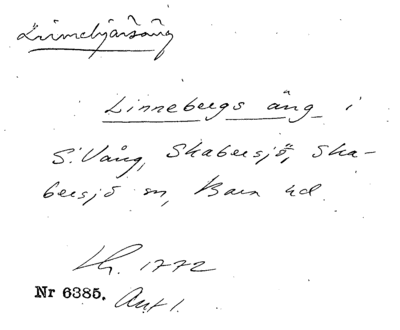 Linnebjärsäng
Linnebergs äng i
S. Vång, Skabersjö, Ska-
bersjö sn, Bara hd.
Lh. 1772
Nr 6385. Akt 1.